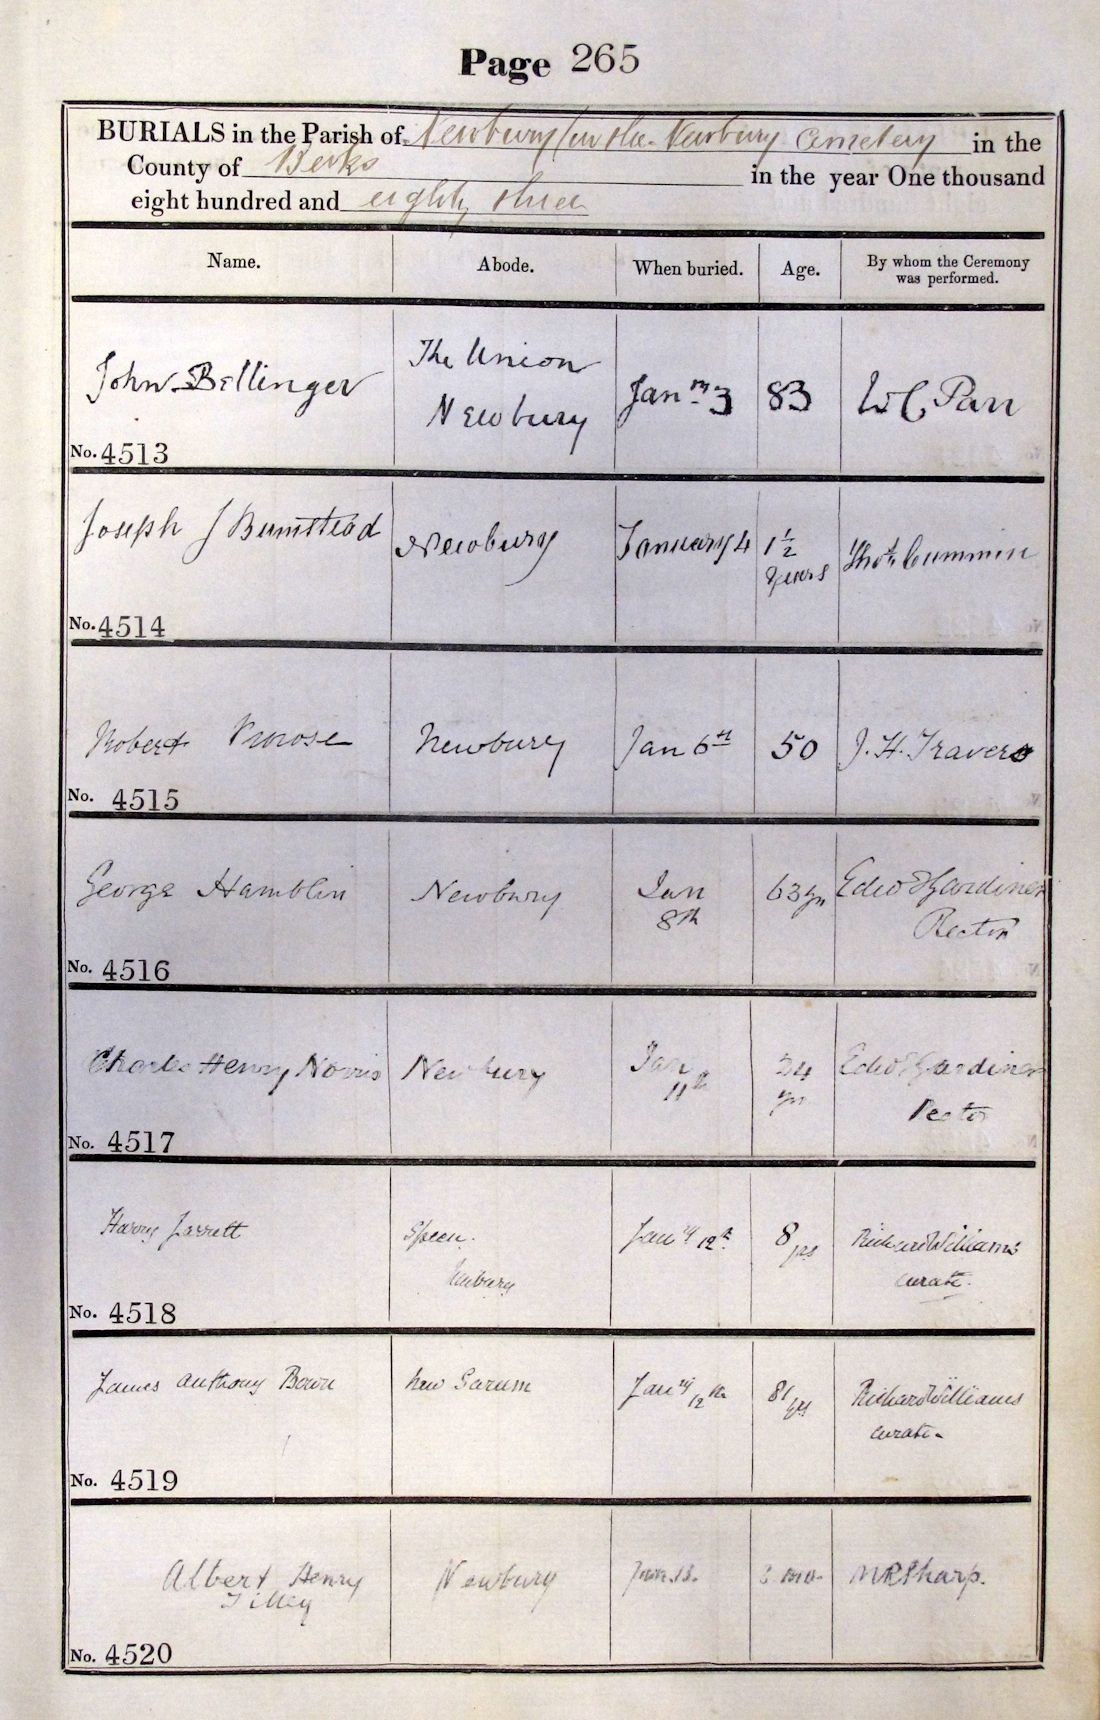 Page 265
BURIALS in the Parish of Newbury in the Newbury Cemetery in the
County of Berks in the year One thousand
eight hundred and eighty three
Name. Abode. When buried. Age. By whom the Ceremony
was performed.
John Bellinger The Union
Newbury Jan 3 83 W C Parr
No. 4513
Joseph J Bumstead Newbury January 4 1 1/2
years Thos Cummin
No. 4514
Robert Prowse Newbury Jan 6th 50 J. H. Travers
No. 4515
George Hamblin Newbury Jan
8th 63 yrs Edwd Gardiner
Rector
No. 4516
Charles Henry Norris Newbury Jan
11th 24
yrs Edwd Gardiner
Rector
No. 4517
Harry Jarrett Speen.
Newbury Jany 12th 8 yrs Richard Williams
curate.
No. 4518
James Anthony Bown New Sarum Jany 12th 81 yrs Richard Williams
curate.
No. 4519
Albert Henry
Tilley Newbury mo. Sharp.
No. 4520